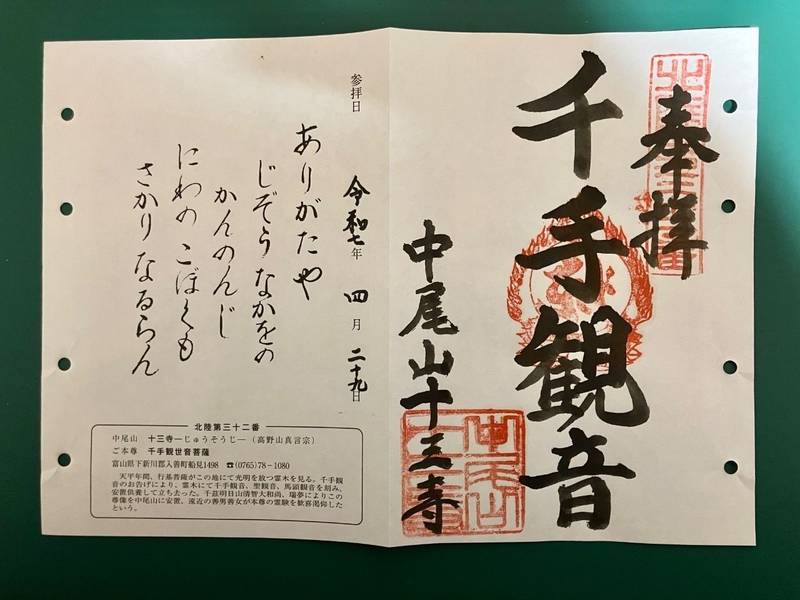 奉拝
千手観音
中尾山十三寺
参拝日　令和七年　四月　二十九日
ありがたや
じぞうなかをの
かんのんじ
にわのこぼくも
さかりなるらん
北陸第三十二番
中尾山　十三寺―じゅうそうじ―（高野山真言宗）
ご本尊　千手観世音菩薩
富山県下新川郡入善町舟見1498　☎(0765)78－1080
天平年間、行基菩薩がこの地にて光明を放つ霊木を見る。千手観
音のお告げにより、霊木にて千手観音、聖観音、馬頭観音を刻み、
安置供養して立ち去った。千茲明日山清智大和尚、瑞夢によりこの
尊像を中尾山に安置、遠近の善男善女が本尊の霊験を歓喜渇仰した
という。